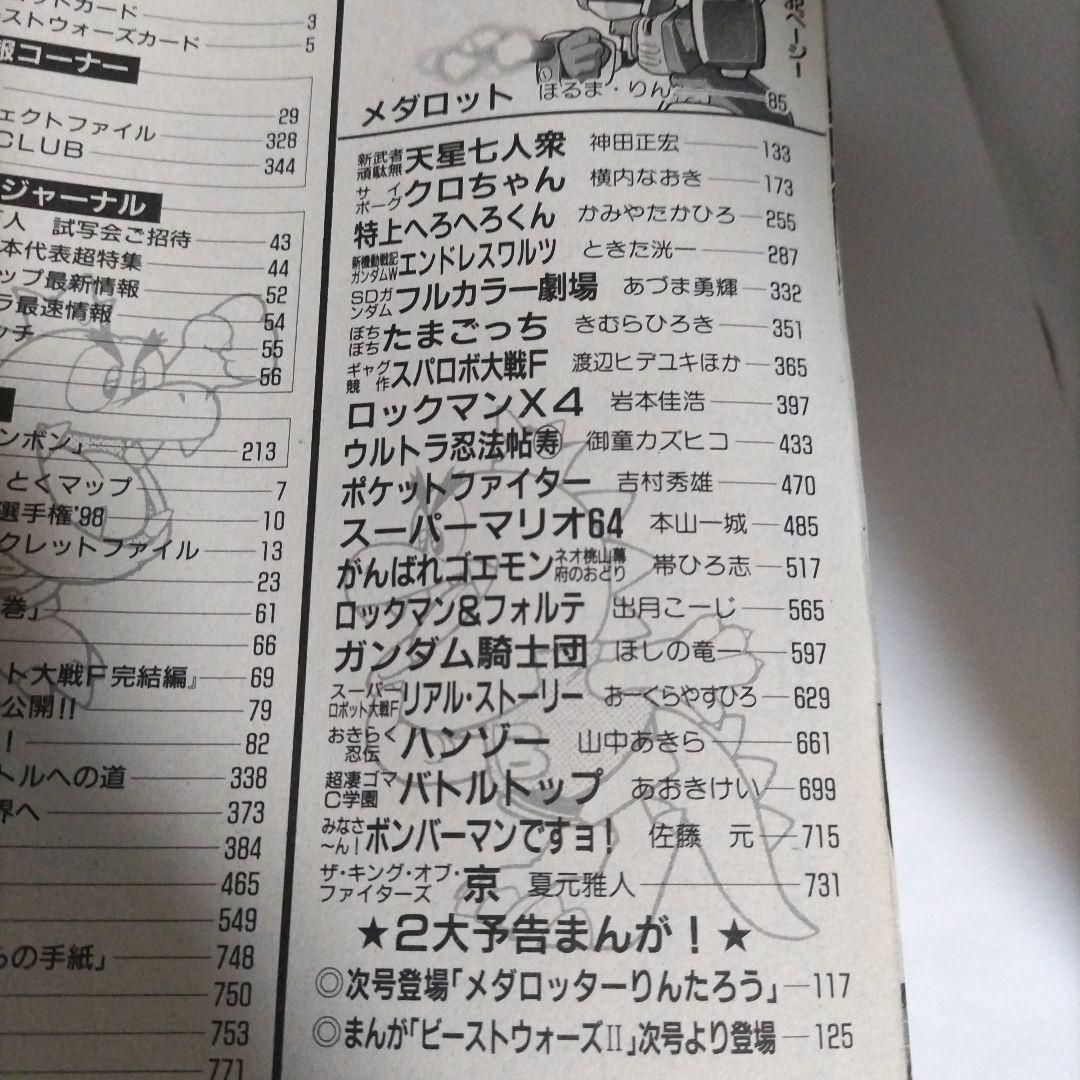 カード 3
ストウォーズカード 5
報コーナー
29
ェクトファイル 328
CLUB 344
ジャーナル
人 試写会ご招待 43
本代表超特集 44
ップ最新情報 52
ラ最速情報 54
ッチ 55
56
ンボン」 213
とくマップ 7
選手権'98 10
クレットファイル 13
23
巻」 61
66
ト大戦F完結編』 69
公開!! 79
! 82
トルへの道 338
界へ 373
384
465
549
らの手紙」 748
750
753
771
メダロット ほるま・りん 85
新武者頑駄無 天星七人衆 神田正宏 133
サイボーグ クロちゃん 横内なおき 173
特上へろへろくん かみやたかひろ 255
新機動戦記ガンダムW エンドレスワルツ ときた洸一 287
SDガンダム フルカラー劇場 あづま勇輝 332
ぽちぽち たまごっち きむらひろき 351
ギャグ競作 スパロボ大戦F 渡辺ヒデユキほか 365
ロックマンX4 岩本佳浩 397
ウルトラ忍法帖㊗寿 御童カズヒコ 433
ポケットファイター 吉村秀雄 470
スーパーマリオ64 本山一城 485
がんばれゴエモン ネオ桃山幕府のおどり 帯ひろ志 517
ロックマン&フォルテ 出月こーじ 565
ガンダム騎士団 ほしの竜一 597
スーパーロボット大戦F リアル・ストーリー おーぐらやすひろ 629
おきらく忍伝 ハンゾー 山中あきら 661
超凄ゴマC学園 バトルトップ あおきけい 699
みなさ〜ん! ボンバーマンですョ! 佐藤 元 715
ザ・キング・オブ・ファイターズ 京 夏元雅人 731
★2大予告まんが!★
◎次号登場「メダロッターりんたろう」 117
◎まんが「ビーストウォーズII」次号より登場 125